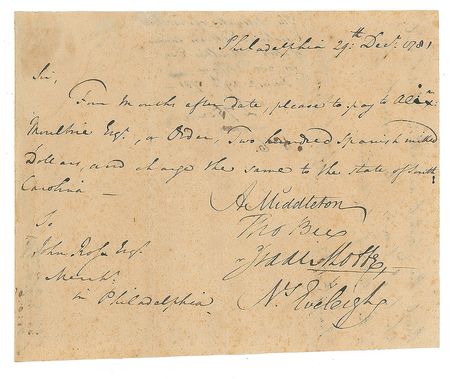 Philadelphia 29.th Decr. 1781
Sir,
Four Months after date, please to pay to Alexr.
Moultrie Esqr. or Order, Two hundred Spanish milled
Dollars, and charge the same to the state of South
Carolina —
A Middleton
Tho Bee
Isaac Motte,
Ns. Eveleigh
To
John Ross Esqr.
Mercht.
in Philadelphia